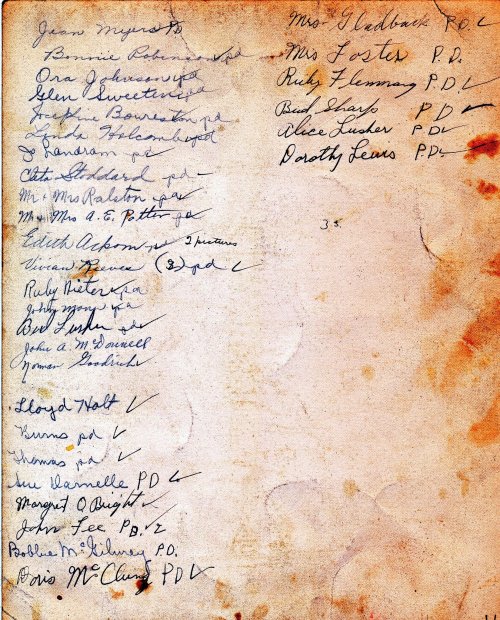 Jean Myers PD
Bonnie Robinson pd
Ora Johnson pd
Glen Sweeten pd
Josephine Boureston pd
Linda Holcomb pd
Jo Landram pd
Cleta Stoddard pd -
Mr + Mrs Ralston pd
Mr + Mrs A. E. Potter pd
Edith Ackom pd 2 pictures
Vivian Reeves (3) pd ✓
Ruby Nieters pd
pd
Bud Lusher pd
John A. McDonnell
Norman Goodrich
Lloyd Holt ✓
Burns pd ✓
Thomas pd ✓
Sue Darnelle PD ✓
Margret O Bright ✓
John Fee PD. ✓
Bobbie McGilvrey P.D.
Doris McClung PD ✓
Mrs Gladback P.D. ✓
Mrs Foster P.D.
Ruby Flemmang P.D. ✓
Bud Sharp PD ✓
Alice Lusher PD ✓
Dorothy Lewis PD. ✓
35